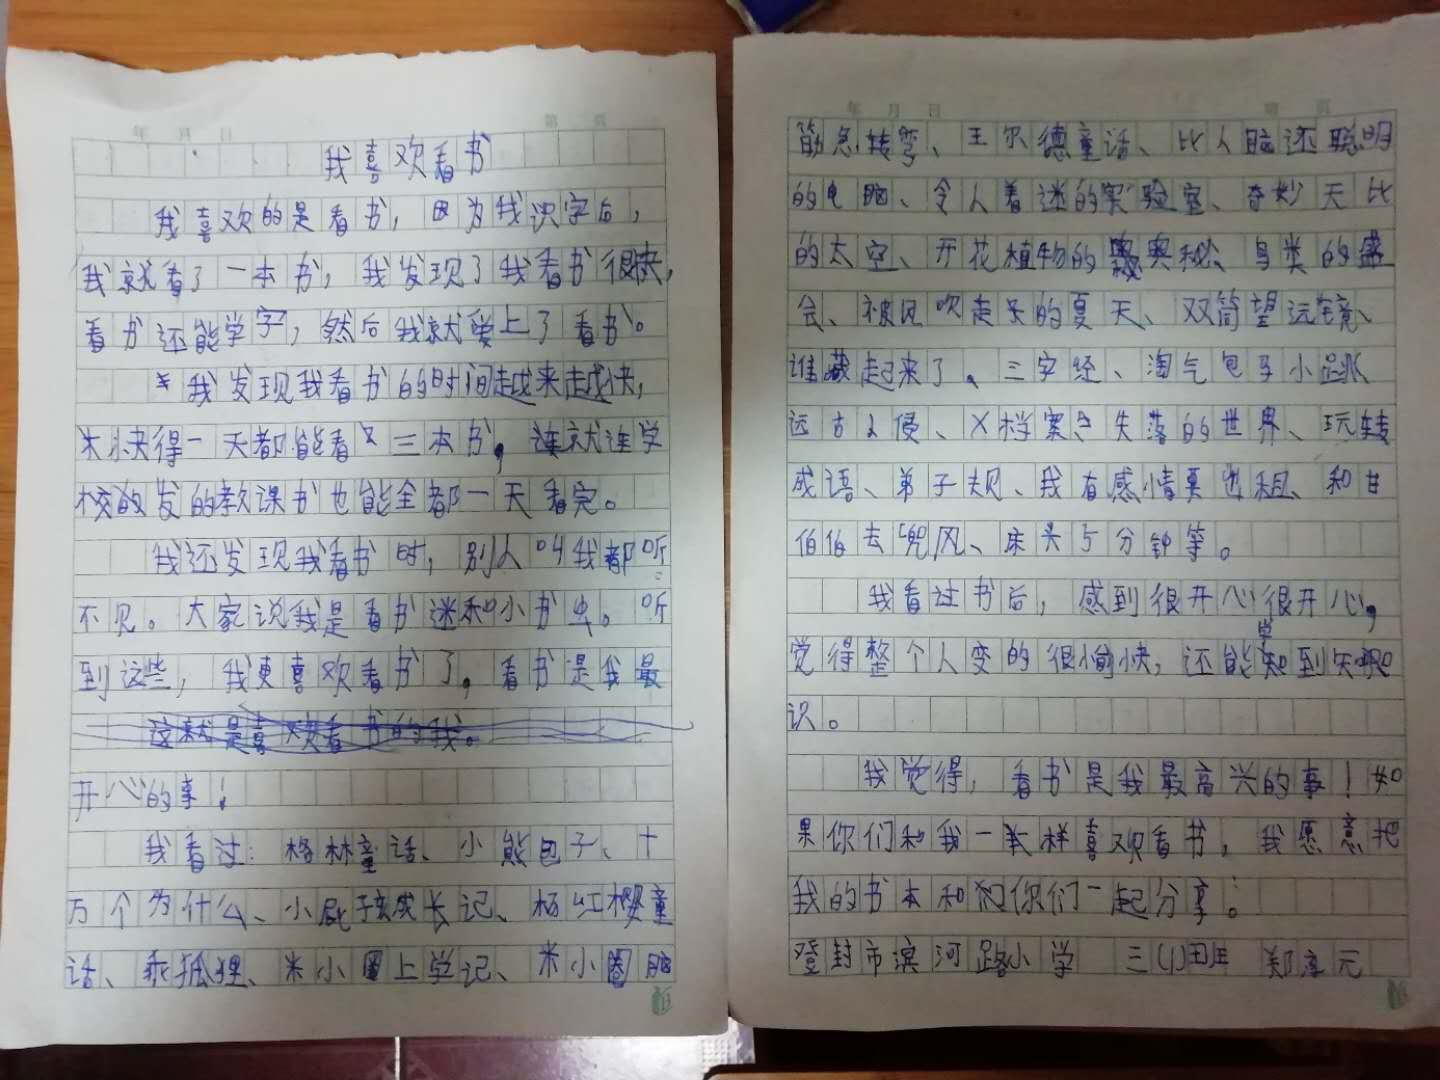 年 月 日 第 页
我喜欢看书
我喜欢的是看书，因为我识字后，
我就看了一本书，我发现了我看书很快，
看书还能学字，然后我就爱上了看书。
我发现我看书的时间越来越快，
快得一天都能看又三本书，连就连学
校的发的教课书也能全都一天看完。
我还发现我看书时，别人叫我都听
不见。大家说我是看书迷和小书虫。听
到这些，我更喜欢看书了，看书是我最
这就是喜欢看书的我。
开心的事！
我看过：格林童话、小熊包子、十
万个为什么、小屁孩成长记、杨红樱童
话、乖狐狸、米小圈上学记、米小圈脑
年 月 日 页
筋急转弯、王尔德童话、比人脑还聪明
的电脑、令人着迷的实验室、奇妙天比
的太空、开花植物的奥秘、鸟类的盛
会、被风吹走的夏天、双筒望远镜、
谁藏起来了、三字经、淘气包子小跳、
远古入侵、X档案、失落的世界、玩转
成语、弟子规、我有感情真也租、和甘
伯伯去兜风、床头5分钟等。
我看过书后，感到很开心很开心，
觉得整个人变的很愉快，还能学到知
识。
我觉得，看书是我最高兴的事！如
果你们和我一样喜欢看书，我愿意把
我的书本和你们一起分享。
登封市滨河路小学 三(1)班 郑 元